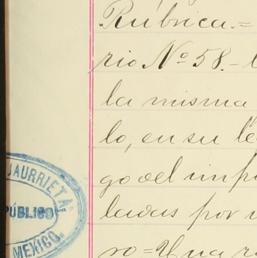 Rúbrica.=
rio Nº 58.-
la misma
lo, en su
go del imp
ladas por
ro=Una
JAURRIETA
PÚBLICO
MEXICO.